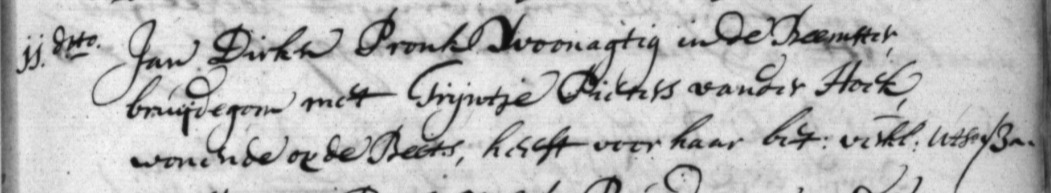 11. dito. Jan Dirksz Pronk Woonagtig in de Beemster,
bruijdegom met Trijntje Pieters vander Hoek,
wonende op de Beets, heeft voor haar bet: verkl: